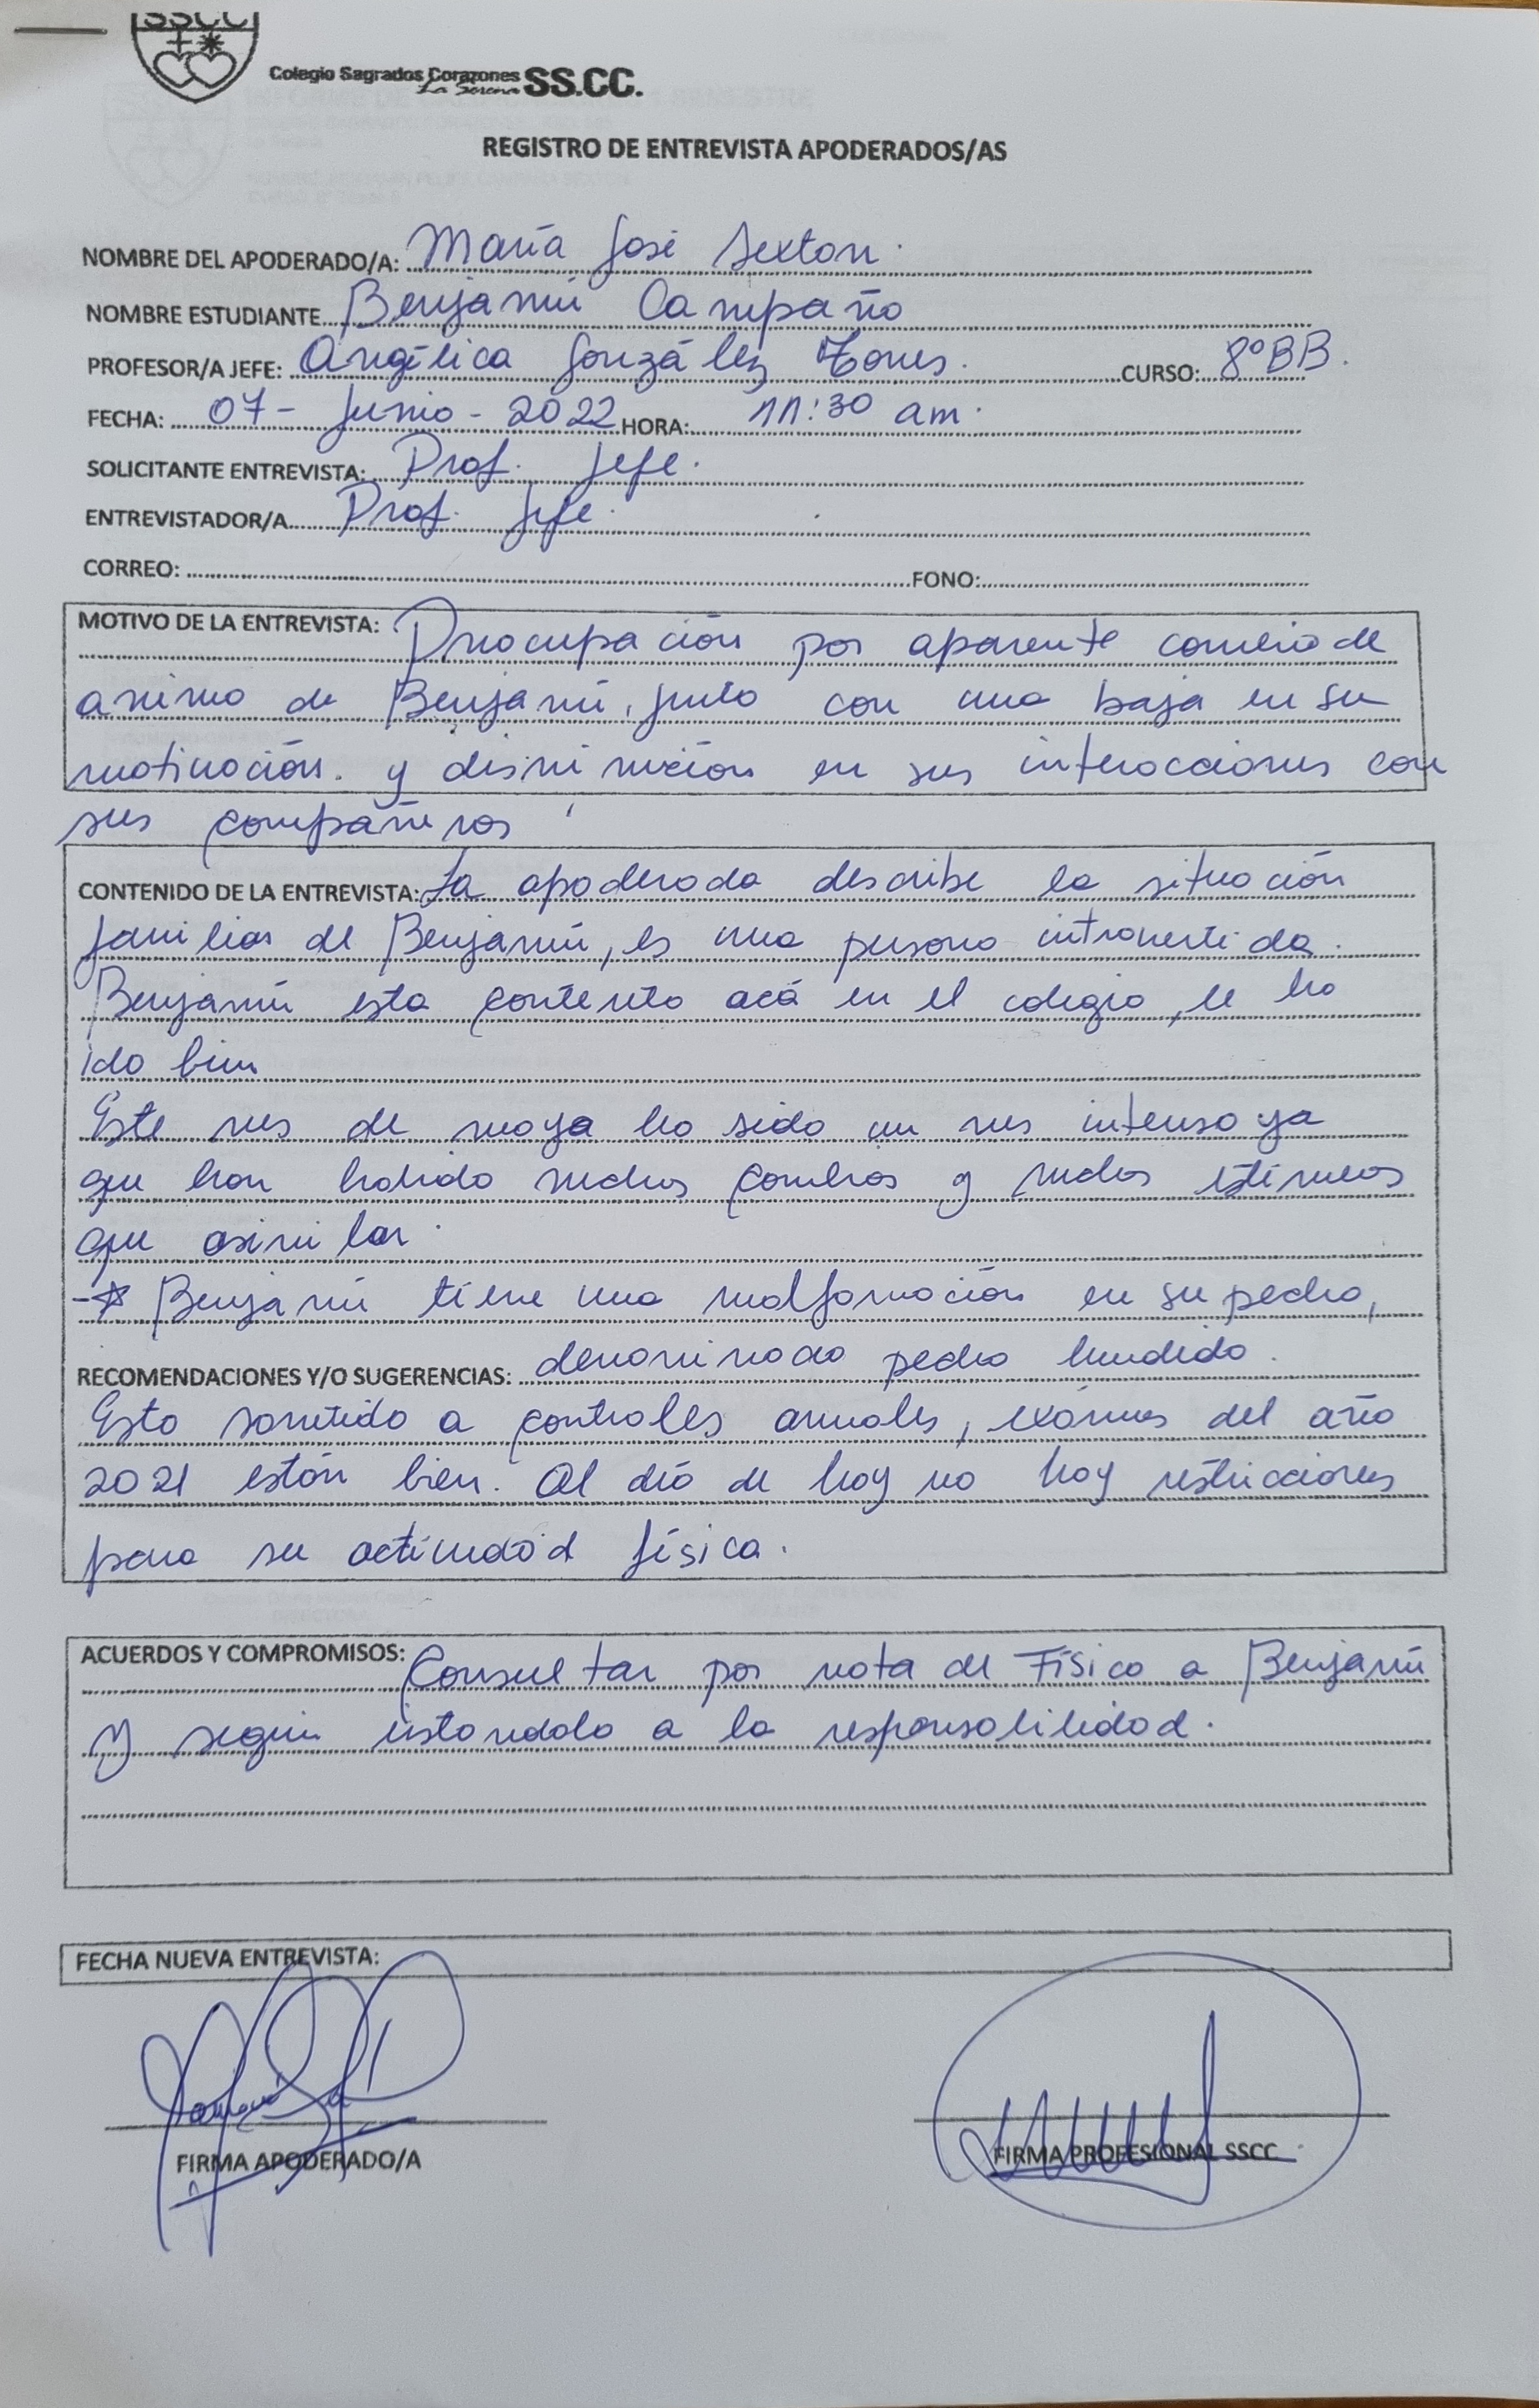 SSCC
Colegio Sagrados Corazones SS.CC.
La Serena
REGISTRO DE ENTREVISTA APODERADOS/AS
NOMBRE DEL APODERADO/A: María José Sexton.
NOMBRE ESTUDIANTE Benjamín Campaño
PROFESOR/A JEFE: Angélica González Torres. CURSO: 8°BB.
FECHA: 07- Junio - 2022 HORA: 11:30 am.
SOLICITANTE ENTREVISTA: Prof. Jefe.
ENTREVISTADOR/A Prof. Jefe.
CORREO: FONO:
MOTIVO DE LA ENTREVISTA: Preocupación por aparente cambio de
animo de Benjamín, junto con una baja en su
motivación. y disminución en sus interacciones con
sus compañeros
CONTENIDO DE LA ENTREVISTA: La apoderada describe la situación
familiar de Benjamín, es una persona introvertida.
Benjamín esta contento acá en el colegio, le ha
ido bien
Este mes de mayo ha sido un mes intenso ya
que han habido muchos cambios y muchos estímulos
que asimilar.
-☆ Benjamín tiene una malformación en su pecho,
RECOMENDACIONES Y/O SUGERENCIAS: denominado pecho hundido.
Esta sometido a controles anuales, exámenes del año
2021 están bien. Al día de hoy no hay restricciones
para su actividad física.
ACUERDOS Y COMPROMISOS: Consultar por nota de Físico a Benjamín
y seguir instandolo a la responsabilidad.
FECHA NUEVA ENTREVISTA:
FIRMA APODERADO/A
FIRMA PROFESIONAL SSCC